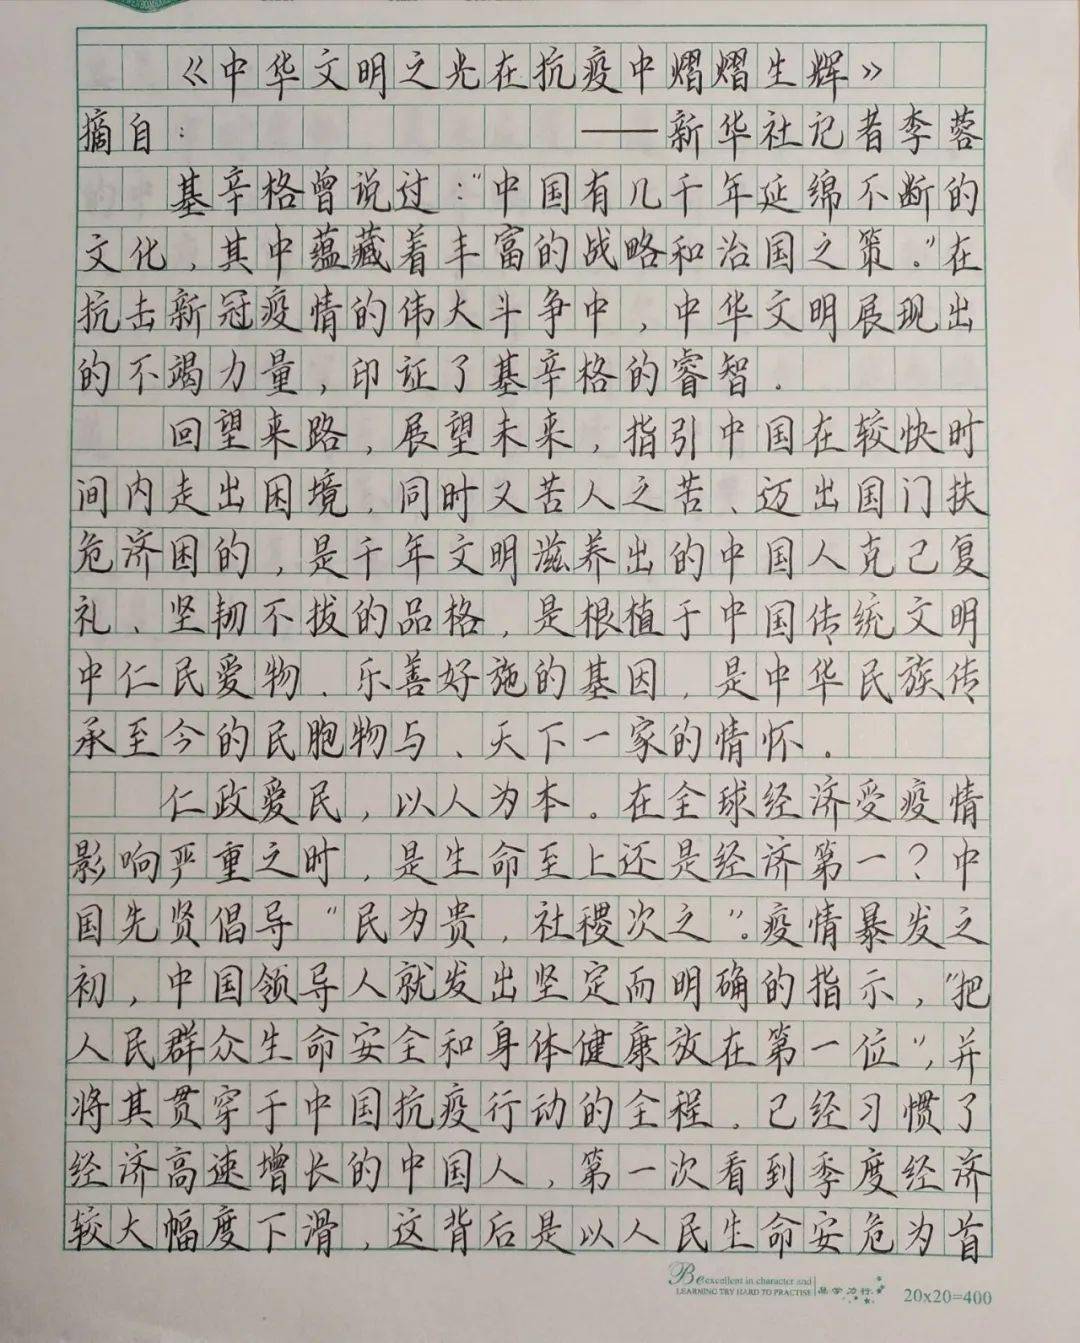 《中华文明之光在抗疫中熠熠生辉》
摘自： ——新华社记者李蓉
基辛格曾说过：“中国有几千年延绵不断的
文化，其中蕴藏着丰富的战略和治国之策。”在
抗击新冠疫情的伟大斗争中，中华文明展现出
的不竭力量，印证了基辛格的睿智.
回望来路，展望未来，指引中国在较快时
间内走出困境，同时又苦人之苦、迈出国门扶
危济困的，是千年文明滋养出的中国人克己复
礼、坚韧不拔的品格，是根植于中国传统文明
中仁民爱物、乐善好施的基因，是中华民族传
承至今的民胞物与、天下一家的情怀。
仁政爱民，以人为本。在全球经济受疫情
影响严重之时，是生命至上还是经济第一？中
国先贤倡导“民为贵，社稷次之”。疫情暴发之
初，中国领导人就发出坚定而明确的指示，“把
人民群众生命安全和身体健康放在第一位”，并
将其贯穿于中国抗疫行动的全程。已经习惯了
经济高速增长的中国人，第一次看到季度经济
较大幅度下滑，这背后是以人民生命安危为首
Be excellent in character and
LEARNING TRY HARD TO PRACTISE
品学力行
20x20=400